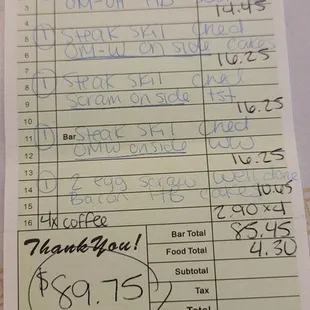 3 OM-OH HB
4 14.45
5 1 Steak Skil ched
6 OM-W on side cake
7 16.25
8 1 Steak Skil ched
9 Scram on side tst
10 16.25
11 1 Bar Steak Skil ched
12 OMW onside WW
13 16.25
14 1 2 egg scram well done
15 Bacon HB cake 10.45
2.90 x 4
16 4x coffee
Bar Total 85.45
Food Total 4.30
Subtotal
Tax
Total
Thank You!
$89.75